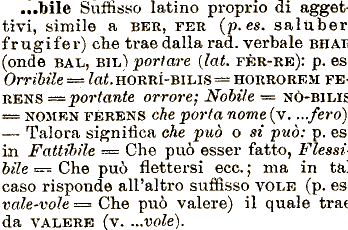 ...bile Suffisso latino proprio di agget-
tivi, simile a BER, FER (p. es. saluber
frugifer) che trae dalla rad. verbale BHAR
(onde BAL, BIL.) portare (lat. FÈR-RE): p. es
Orribile = lat. HORRÍ-BILIS = HORROREM FE-
RENS = portante orrore; Nobile = NÒ-BILIS
= NOMEN FÈRENS che porta nome (v. ...fero)
— Talora significa che può o si può: p. es
in Fattibile = Che può esser fatto, Flessi-
bile = Che può flettersi ecc.; ma in tal
caso risponde all'altro suffisso VOLE (p. es
vale-vole = Che può valere) il quale trae
da VALERE (v. ...vole).